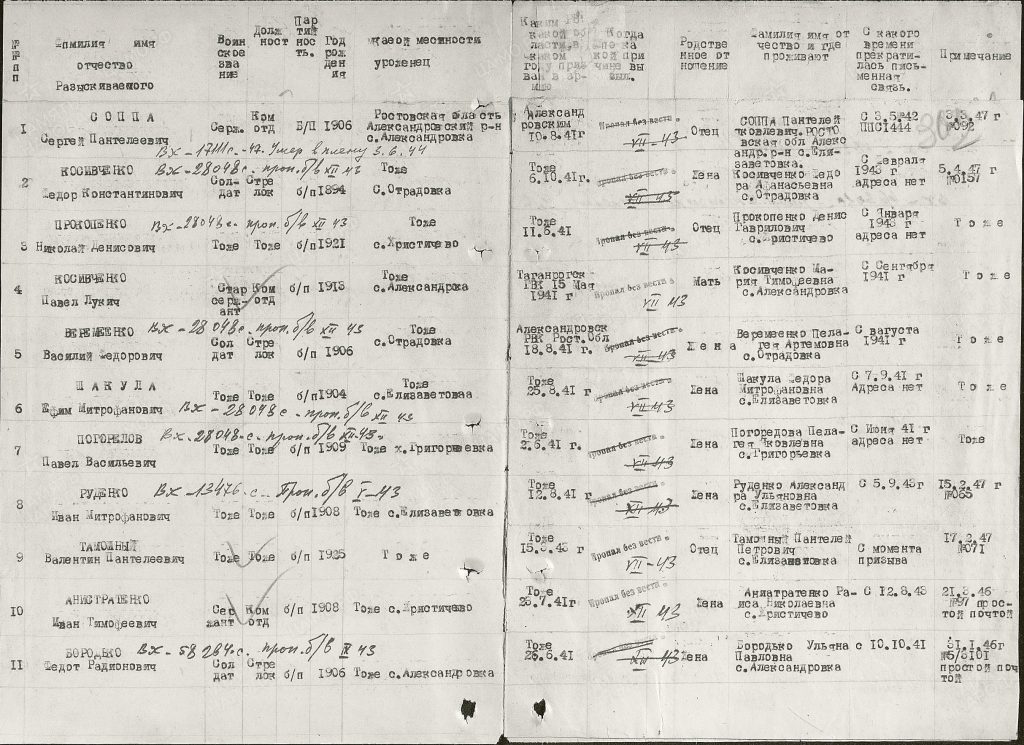 №№ пп
Фамилия имя отчество Разыскиваемого
Воинское звание
Должност
Партийность.
Год рождения
какой местности уроженец
Каким РВК какой области, в каком году призван в армию
Когда по какой причине выбыл.
Родственное отношение
Фамилия имя отчество и где проживают
С какого времени прекратилась письменная связь.
Примечание
I СОППА Сергей Пантелеевич Серж. Ком отд Б/П 1906 Ростовская область Александровский р-н с.Александровка
Александровским 10.8.41г Пропал без вести VII-43 Отец СОППА Пантелей Яковлевич. РОСТОвская обл Александ. р-н с.Елизаветовка. С 3.5.42 ППС1444 3.3.47 г №092
Умер в плену 3.6.44
2 КОСИВЧЕНКО Вх-28048с. проп. б/в XII 43
Федор Константинович Солдат Стрелок б/п 1894 Тоже с.Отрадовка
Тоже 6.10.41г. Пропал без вести Жена Косивченко Федора Афанасьевна с.Отрадовка С февраля 1943 г адреса нет 5.4.47 г №0157
3 ПРОКОПЕНКО Вх-28048с. проп. б/в XII 43
Николай Денисович Тоже Тоже б/п 1921 Тоже с.Христичево
Тоже 11.6.41 Пропал без вести VII-43 Отец Прокопенко Денис Гаврилович с.Христичево С Января 1943 г адреса нет Тоже
4 КОСИВЧЕНКО Павел Лукич Старсержант Ком отд б/п 1913 Тоже с.Александрока
Таганрогск РВК 15 Мая 1941 г Пропал без вести VII 43 Мать Косивченко Мария Тимофеевна с.Александровка С Сентября 1941 г Тоже
5 ВЕРЕМЕЕНКО Вх-28048с. проп. б/в XII 43
Василий Федорович Солдат Стрелок б/п 1906 Тоже с.Отрадовка
Александровск РВК Рост.Обл 18.8.41г. Пропал без вести VII-43 Жена Веремеенко Пелагея Артемовна с.Отрадовка С августа 1941 г Тоже
6 ШАКУЛА Ефим Митрофанович Тоже Тоже б/п 1904 Тоже с.Елизаветоваа
Вх-28048с - проп. б/в XII 43
Тоже 25.8.41 г Пропал без вести VII 43 Жена Шакула Федора Митрофановна с.Елизаветовка С 7.9.41 г Адреса нет Тоже
7 ПОГОРЕЛОВ Вх-28048-с. проп. б/в XII-43г
Павел Васильевич Тоже Тоже б/п 1909 Тоже х.Григорьеевка
Тоже 2.6.41 г. Пропал без вести VII-43 Жена Погоредова Пелагея Яковлевна с.Григорьевка С Июня 41 г адреса нет Тоже
8 РУДЕНКО Вх-13476.с. Проп. б/в V-43
Иван Митрофанович Тоже Тоже б/п 1908 Тоже с.Елизаветовка
Тоже 12.8.41 Пропал без вести XII 43 Жена Руденко Александра Ульяновна с.Елизаветовка С 5.9.43г 15.2.47 г №065
9 ТАМОЖНЫЙ Валентин Пантелеевич Тоже Тоже б/п 1925 Тоже
Тоже Пропал без вести VII-43 Отец Таможный Пантелей Петрович с.Елизаветовка С момента призыва 17.2.47 №071
10 АНИСТРАТЕНКО Иван Тимофеевич Сесжант Ком отд б/п 1908 Тоже с.Христичево
Тоже Пропал без вести XII 43 Жена Аниатратенко Раиса Николаевна с.Христичево С 12.8.43 21.3.46 №97 простой почтой
11 БОРОДЬКО Вх-58264с. проп. б/в
Федот Радионович Солдат Стрелок б/п 1906 Тоже с.Александровка
Тоже 26.6.41 XII 43 Жена Бородько Ульяна Павловна с.Александровка с 10.10.41 31.1.46г №5/3101 простой почтой